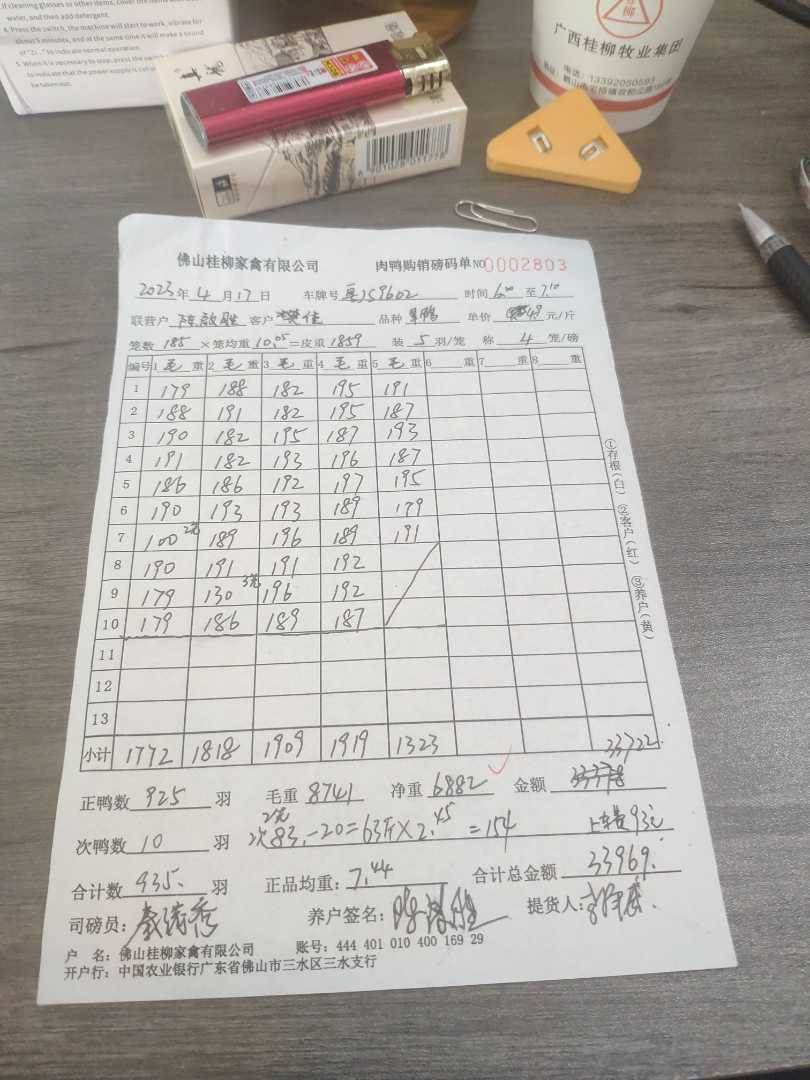 if cleaning glasses or other items, cover the items with
water, and then add detergent.
4. Press the switch, the machine will start to work, vibrate for
about 5 minutes, and at the same time it will make a sound
of "Zi..." to indicate normal operation.
5. When it is necessary to stop, press the switch
to indicate that the power supply is cut
be taken out.
广西桂柳牧业集团
电话：13392050593
6901028011778
佛山桂柳家禽有限公司 肉鸭购销磅码单 NO 0002803
2023年4月17日 车牌号 粤J59602 时间 6.00 至 7.10
联营户 客户 樊佳 品种 单价 元/斤
笼数 185 ×笼均重 10.05 =皮重 1859 装 5 羽/笼 称 4 笼/磅
编号 1 毛 重 2 毛 重 3 毛 重 4 毛 重 5 毛 重 6 重 7 重 8 重
1 179 188 182 195 191
2 188 191 182 195 187
3 190 182 195 187 193
4 191 182 193 196 187
5 186 186 192 197 195
6 190 193 193 189 179
7 100 2笼 189 196 189 191
8 190 191 191 192
9 179 130 3笼 196 192
10 179 186 189 187
11
12
13
小计 1772 1818 1909 1919 1323
①存根(白) ②客户(红) ③养户(黄)
33722
正鸭数 925 羽 毛重 8741 净重 6882 金额
2笼
次鸭数 10 羽 次83.-20=63斤×2.45=154 上车费93元
合计数 935. 羽 正品均重: 7.44 合计总金额 33969.
司磅员: 养户签名: 提货人:
户 名: 佛山桂柳家禽有限公司 账号: 444 401 010 400 169 29
开户行: 中国农业银行广东省佛山市三水区三水支行